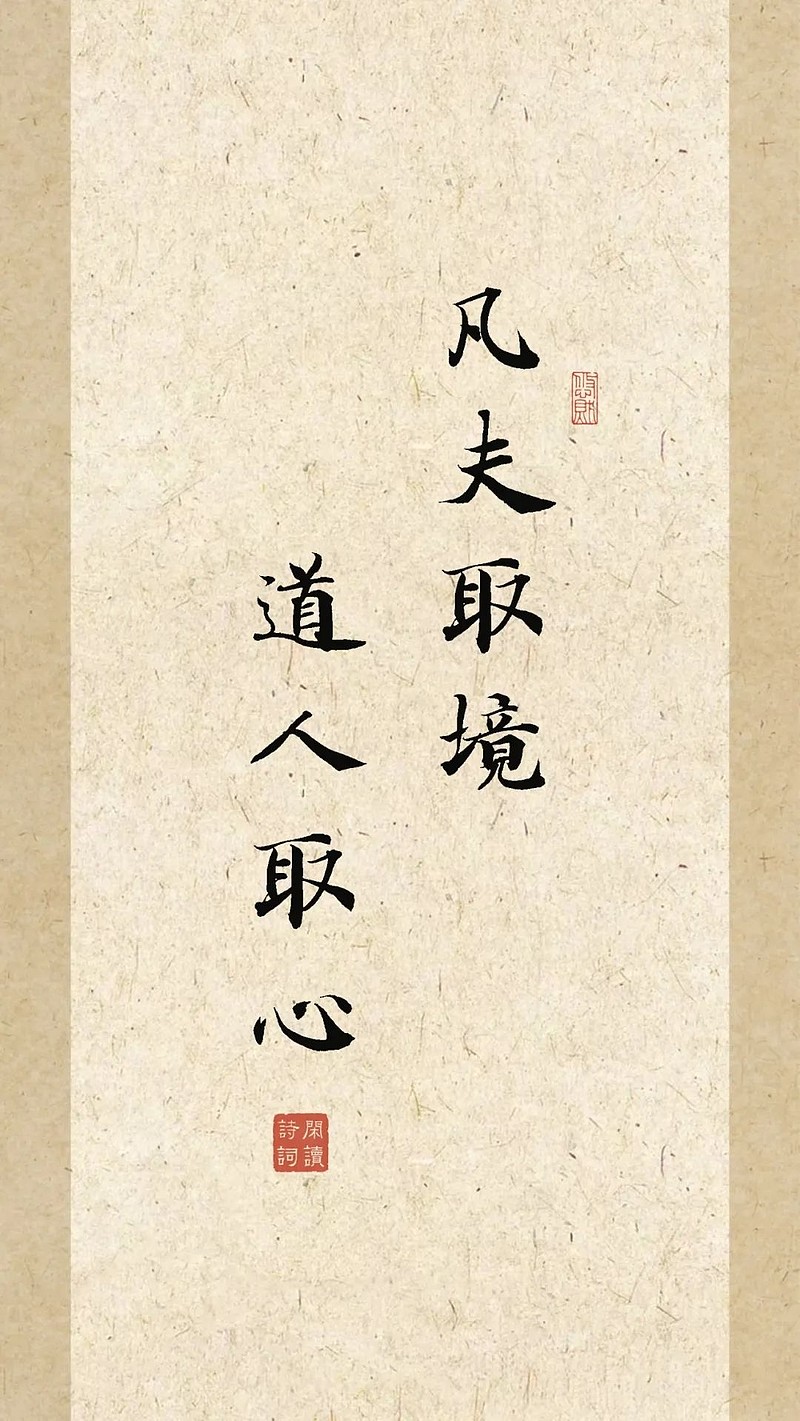 凡夫取境
道人取心
閑讀
詩詞